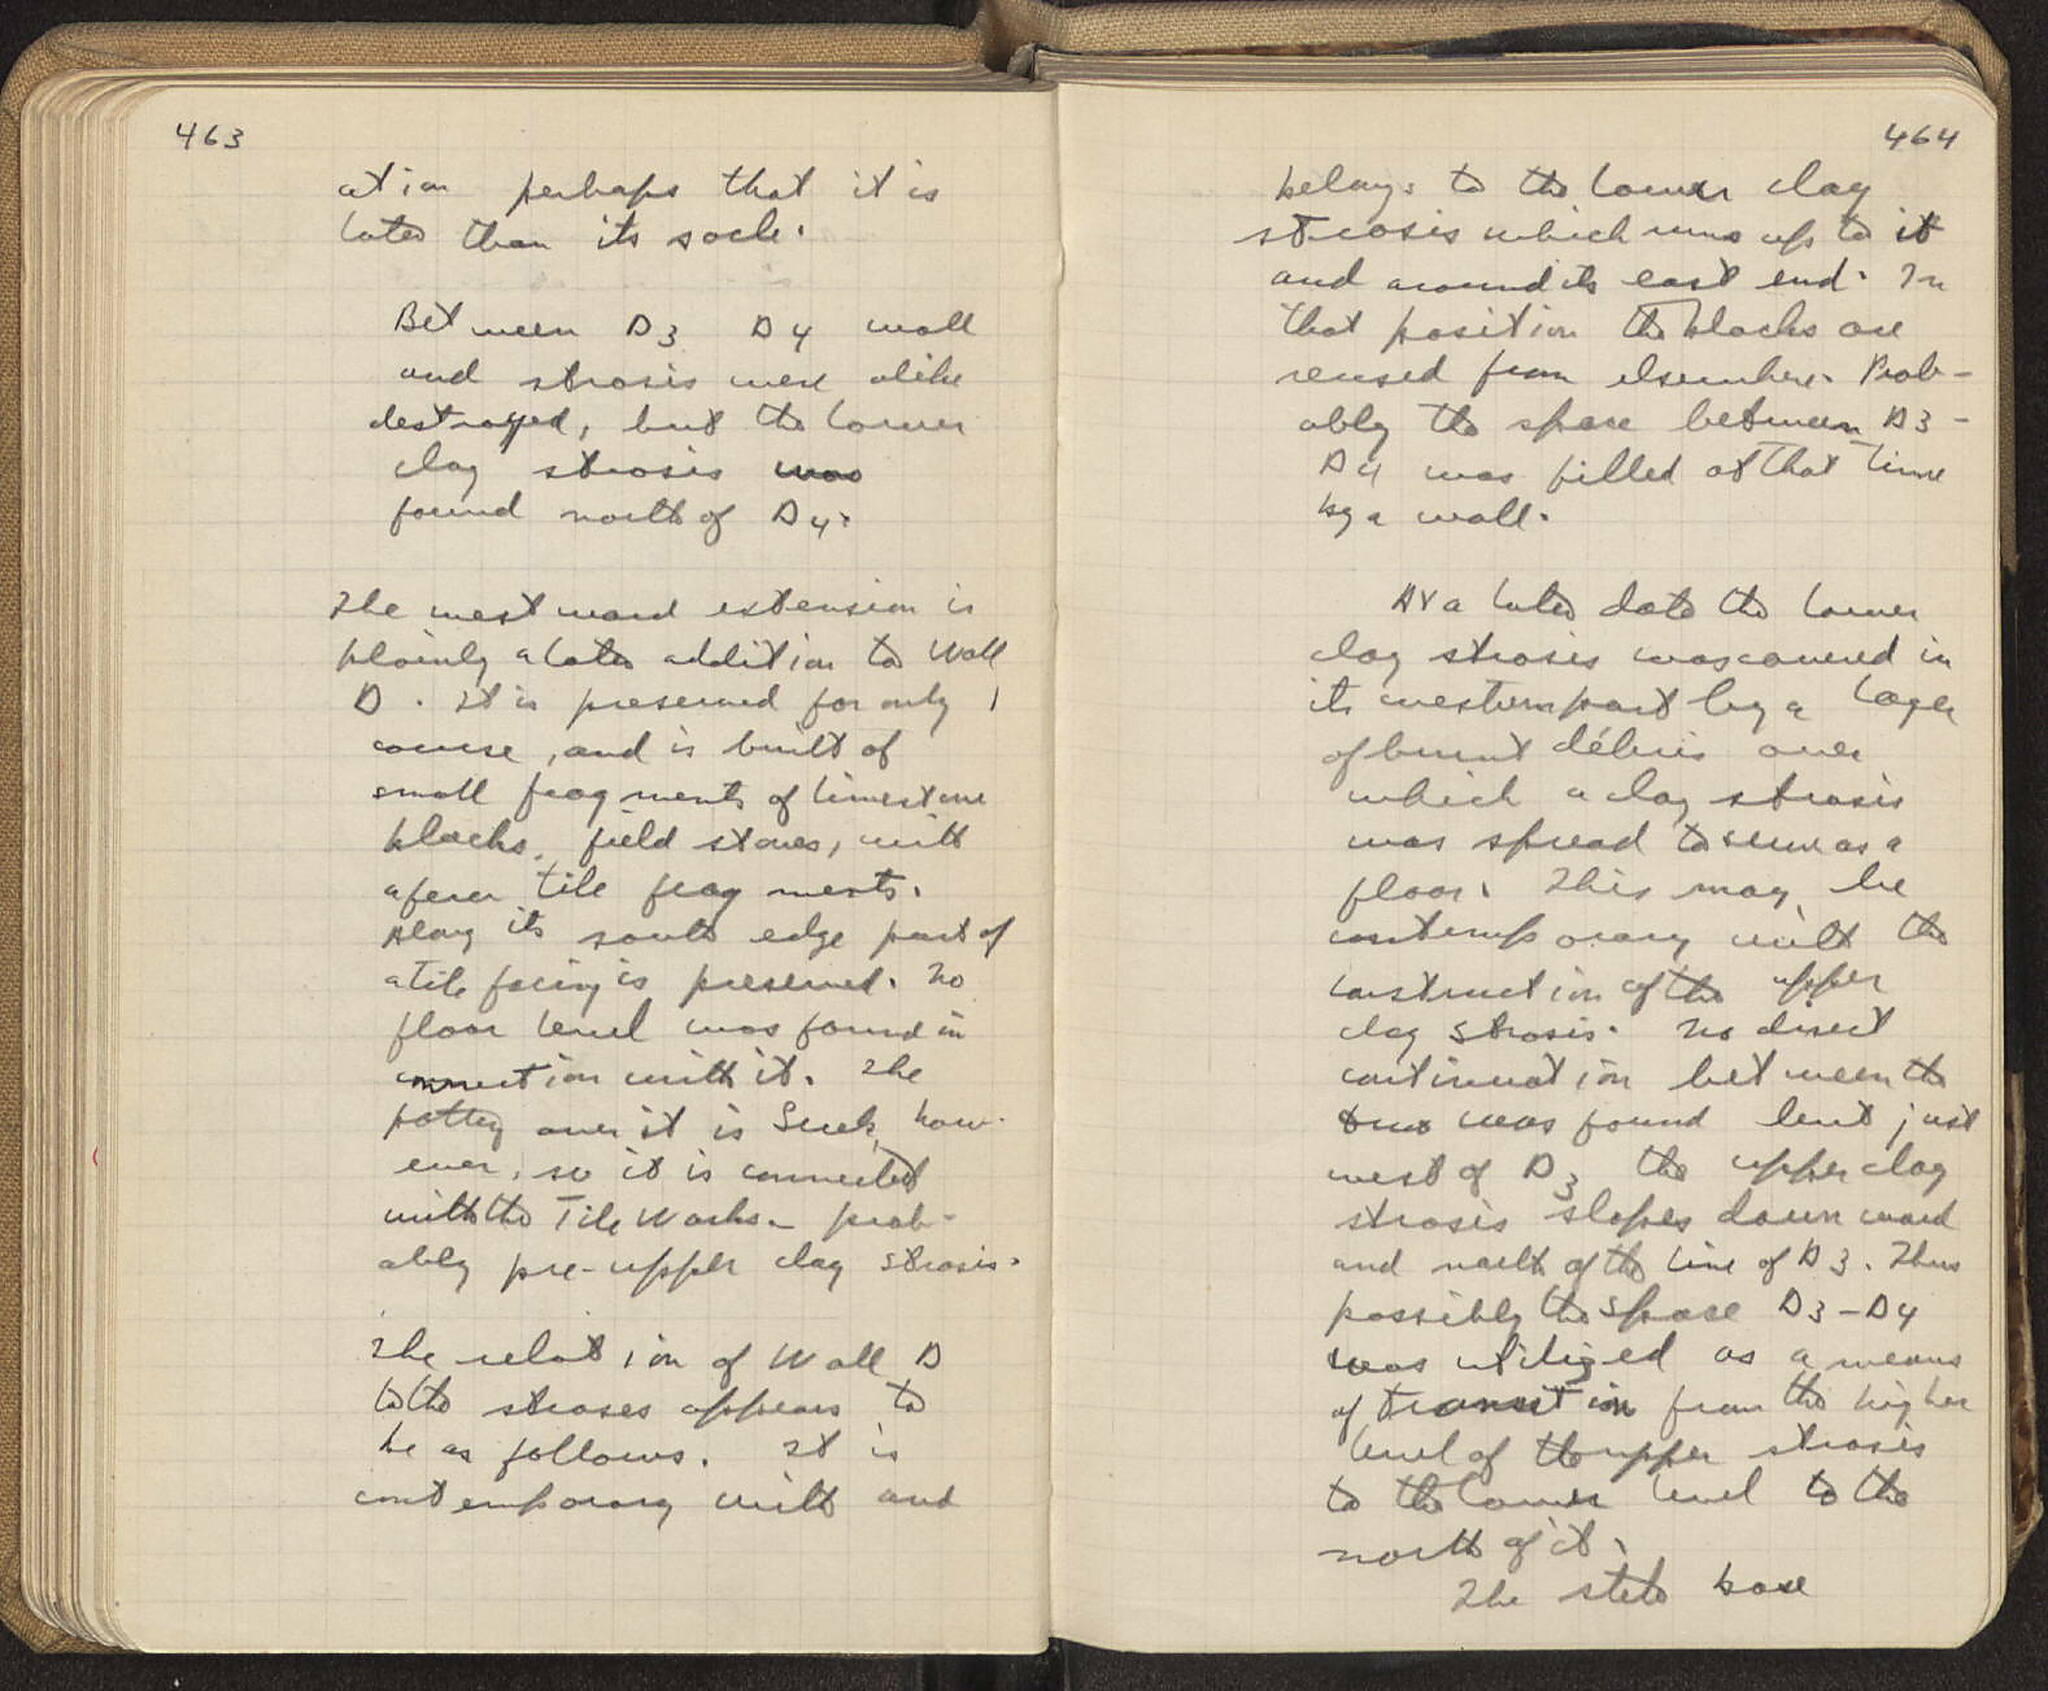 463
ation perhaps that it is
later than its socle.
Between D3 D4 wall
and strosis were alike
destroyed, but the lower
clay strosis was
found north of D4.
The westward extension is
plainly a later addition to Wall
D. It is preserved for only 1
course, and is built of
small fragments of limestone
blocks, field stones, with
a few tile fragments.
Along its south edge part of
a tile facing is preserved. No
floor level was found in
connection with it. The
pottery over it is Greek, how-
ever, so it is connected
with the Tile Works - prob-
ably pre-upper clay strosis.
The relation of Wall D
to the stroses appears to
be as follows. It is
contemporary with and
464
belongs to the lower clay
strosis which runs up to it
and around its east end. In
that position the blocks are
reused from elsewhere. Prob-
ably the space between D3-
D4 was filled at that time
by a wall.
At a later date the lower
clay strosis was covered in
its western part by a layer
of burnt débris over
which a clay strosis
was spread to serve as a
floor. This may be
contemporary with the
construction of the upper
clay strosis. No direct
continuation between the
two was found but just
west of D3 the upper clay
strosis slopes downward
and north of the line of D3. Thus
possibly the space D3-D4
was utilized as a means
of transition from the higher
level of the upper strosis
to the lower level to the
north of it.
The stele base